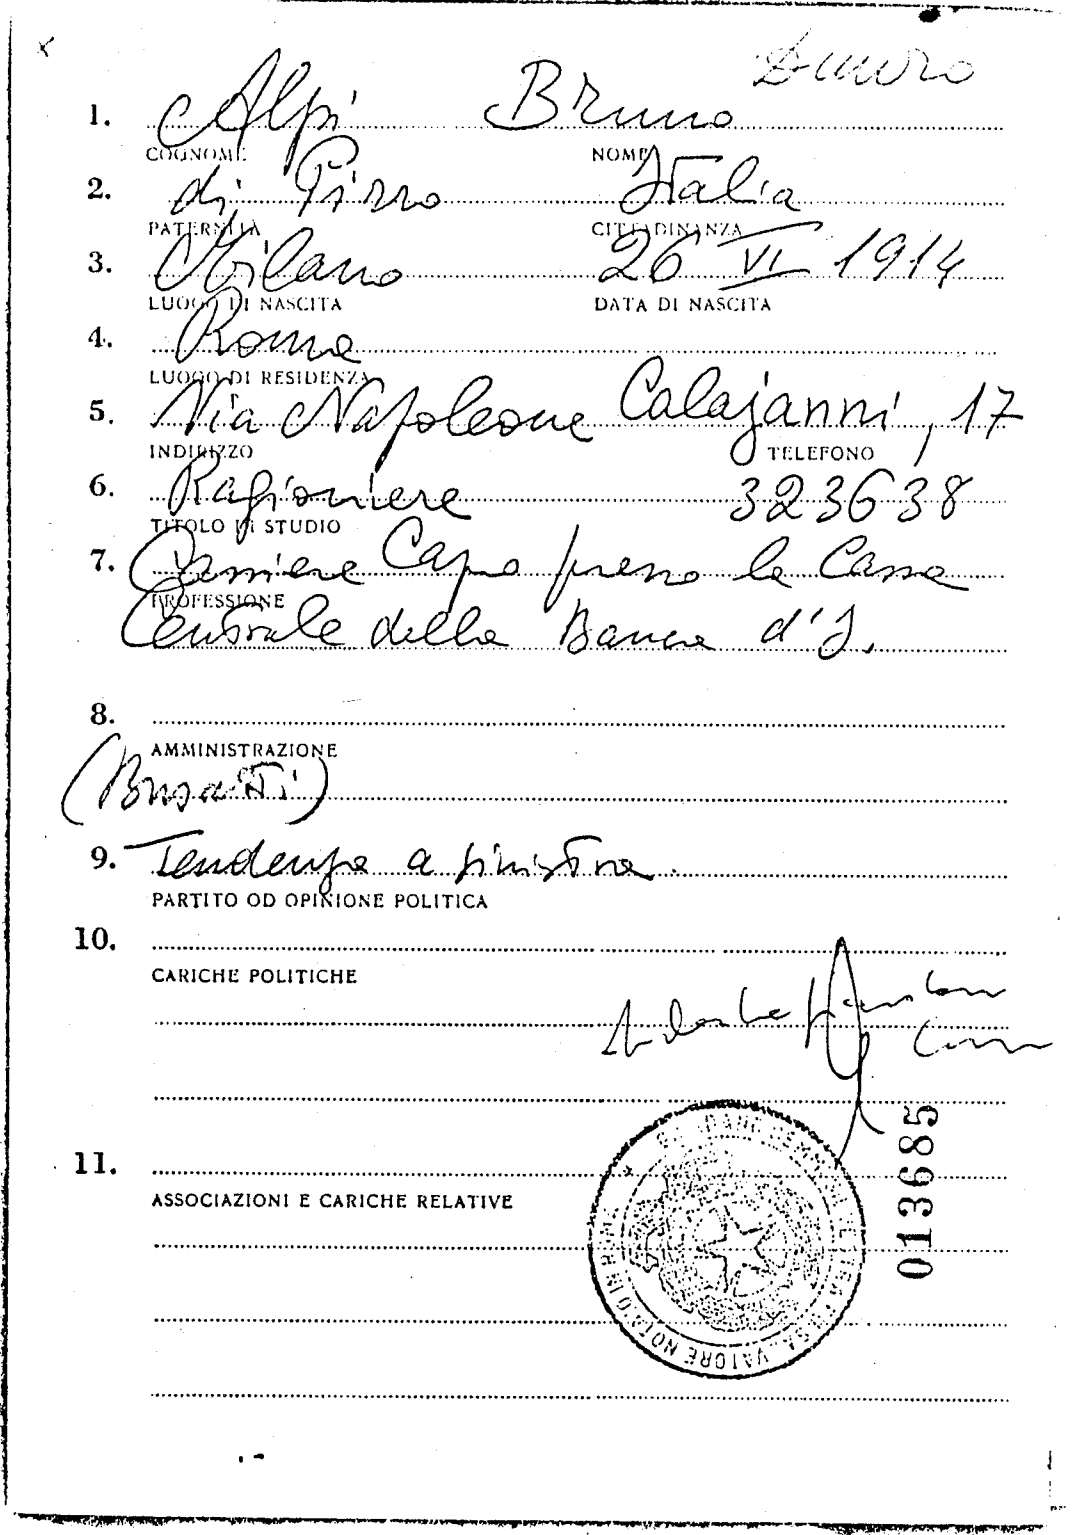 1. Alpi Bruno
COGNOME NOME
2. di Pirro Italia
PATERNITÀ CITTADINANZA
3. Milano 26 VI 1914
LUOGO DI NASCITA DATA DI NASCITA
4. Roma
LUOGO DI RESIDENZA
5. Via Napoleone Calajanni, 17
INDIRIZZO TELEFONO
6. Ragioniere 323638
TITOLO DI STUDIO
7. Cassiere Capo presso la Cassa
PROFESSIONE
Centrale della Banca d'I.
8.
AMMINISTRAZIONE
(Busatti)
9. Tendenza a sinistra.
PARTITO OD OPINIONE POLITICA
10.
CARICHE POLITICHE
11.
ASSOCIAZIONI E CARICHE RELATIVE
013685
NOTAIO IN ROMA